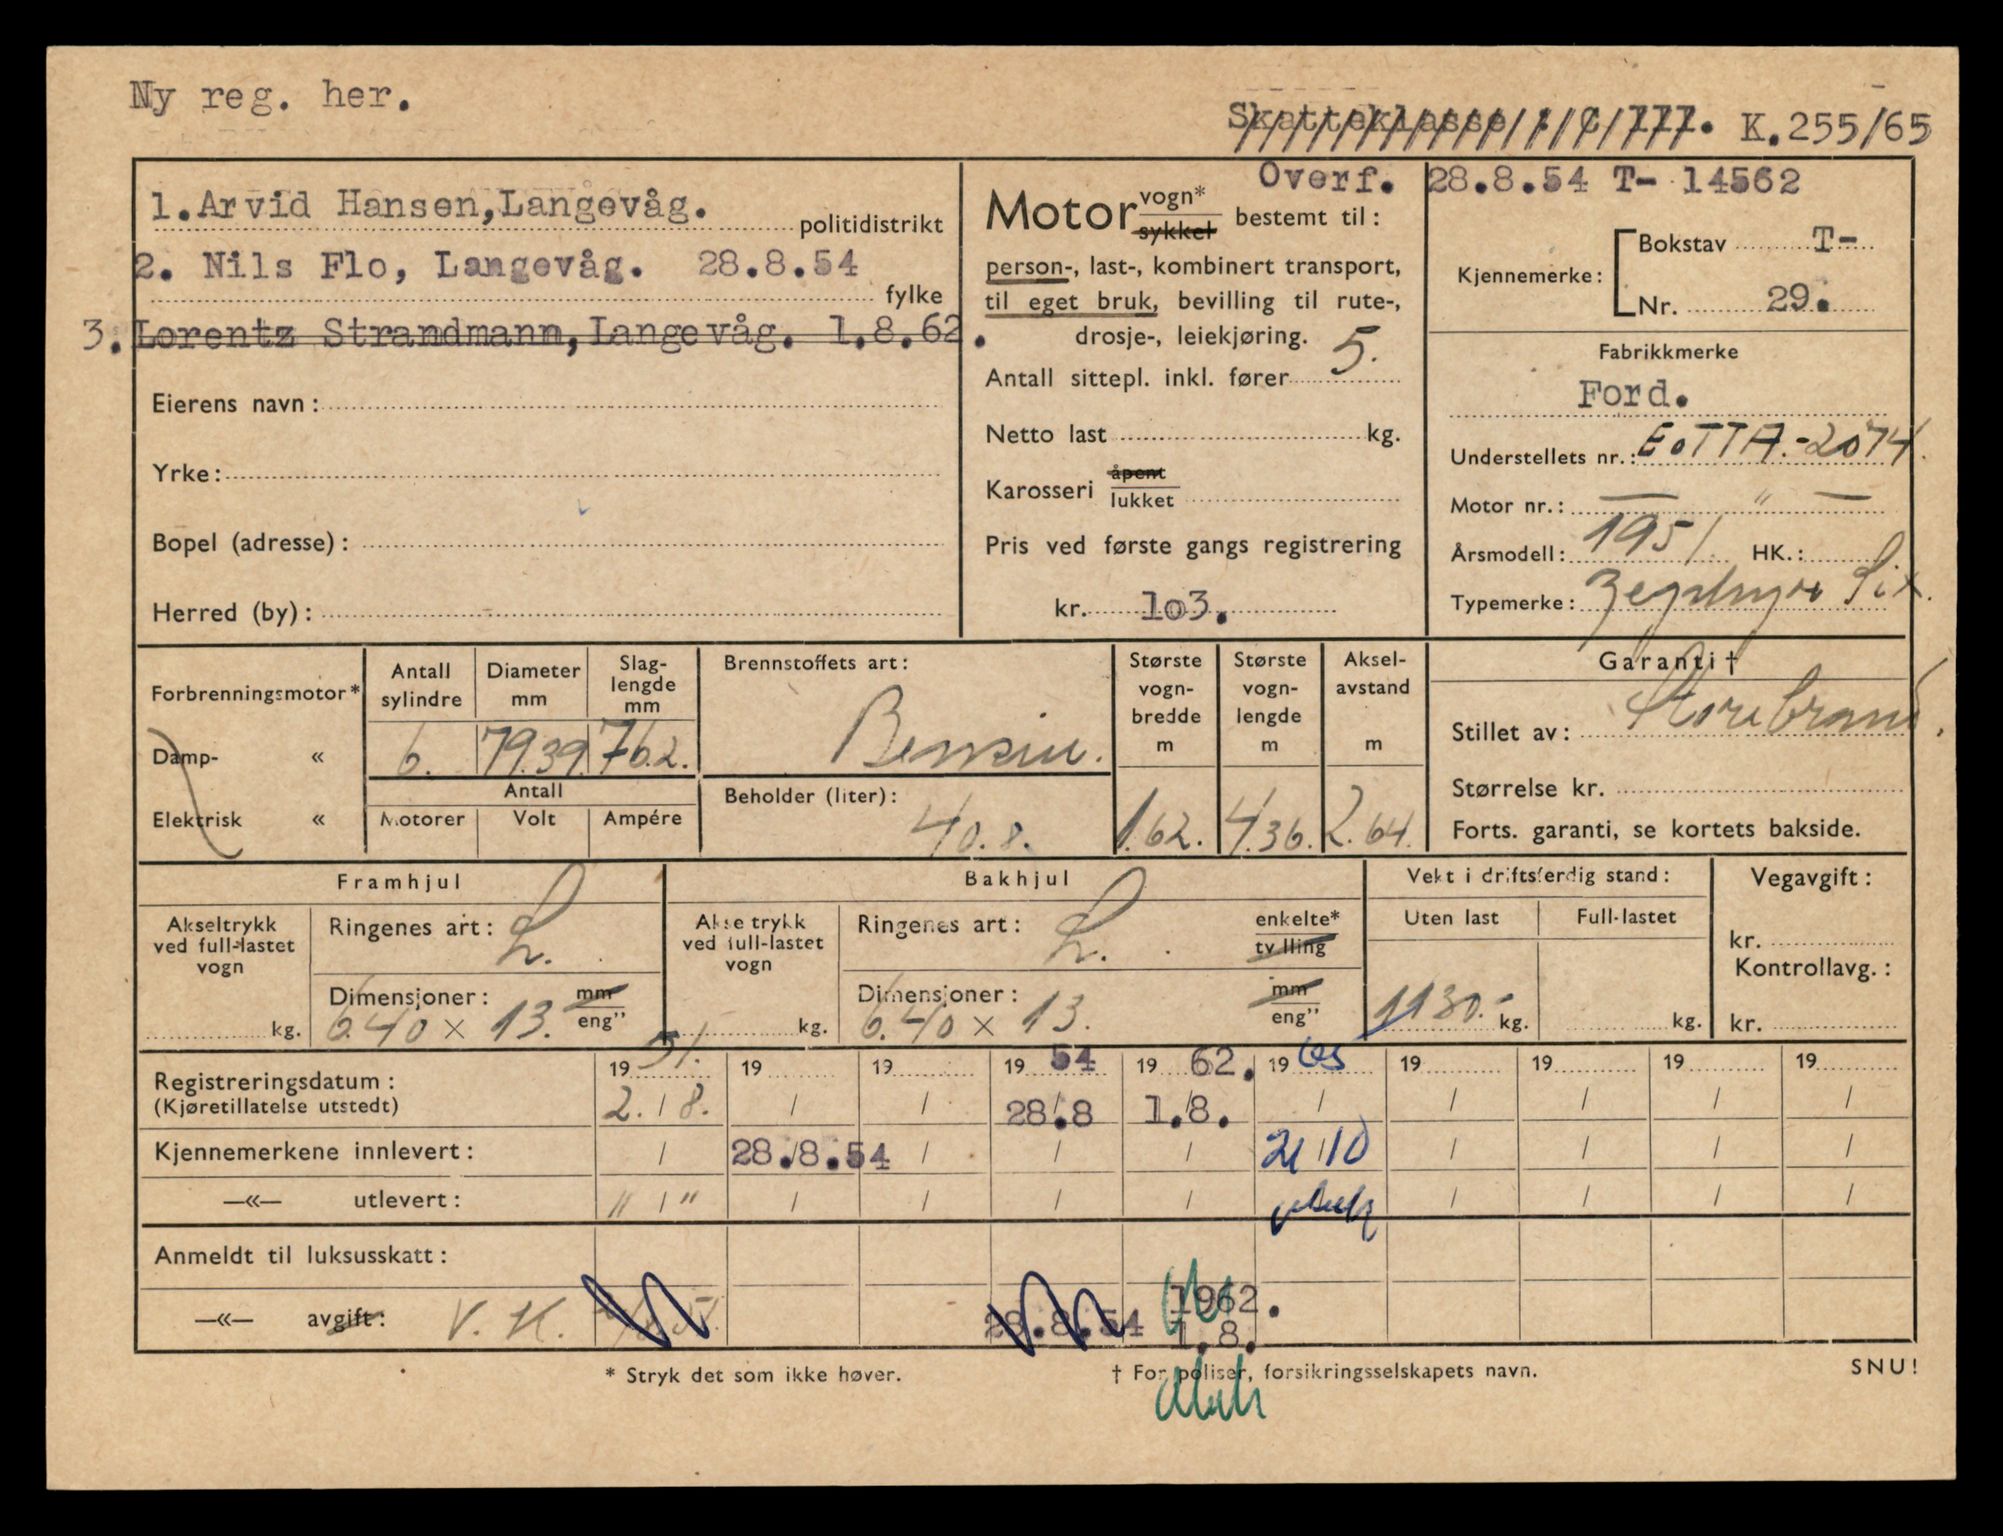 Ny reg. her.
Skatteklasse K.255/65
1. Arvid Hansen, Langevåg. politidistrikt
2. Nils Flo, Langevåg. 28.8.54
fylke
3. Lorentz Strandmann, Langevåg. 1.8.62.
Eierens navn:
Yrke:
Bopel (adresse):
Herred (by):
Overf. 28.8.54 T- 14562
Motor vogn* sykkel bestemt til:
person-, last-, kombinert transport,
til eget bruk, bevilling til rute-,
drosje-, leiekjøring.
Antall sittepl. inkl. fører 5.
Netto last kg.
Karosseri åpent lukket
Pris ved første gangs registrering
kr. 103.
Kjennemerke: Bokstav T-
Nr. 29.
Fabrikkmerke
Ford.
Understellets nr.: EOTTA.-2074.
Motor nr.: — " —
Årsmodell: 1951. HK.:
Typemerke: Zephyr Six.
Forbrenningsmotor*
Damp- «
Elektrisk «
Antall sylindre
6.
Diameter mm
79.39.
Slag- lengde mm
76.2.
Antall
Motorer Volt Ampére
Brennstoffets art:
Bensin.
Beholder (liter):
40.8.
Største vogn- bredde m
1.62.
Største vogn- lengde m
4.36.
Aksel- avstand m
2.64.
Garanti †
Stillet av: Storebrand.
Størrelse kr.
Forts. garanti, se kortets bakside.
Framhjul
Akseltrykk ved full-lastet vogn
kg.
Ringenes art: L.
Dimensjoner: mm eng"
6.40 x 13.
Bakhjul
Akseltrykk ved full-lastet vogn
kg.
Ringenes art: L. enkelte* tvilling
Dimensjoner: mm eng"
6.40 x 13.
Vekt i driftsferdig stand:
Uten last Full-lastet
1130.- kg. kg.
Vegavgift:
kr.
Kontrollavg.:
kr.
Registreringsdatum: 19 51. 19 19 19 54 19 62. 19 65 19 19 19 19
(Kjøretillatelse utstedt) 2. / 8. / / 28.8 1.8. / / / / /
Kjennemerkene innlevert: / 28.8.54 / / / 21/10 / / / /
—«— utlevert: " / " / / / / / / / /
Anmeldt til luksusskatt:
—«— avgift: V. K. 28.8.54 1962.
1.8.
* Stryk det som ikke høver.
† For poliser, forsikringsselskapets navn.
SNU!